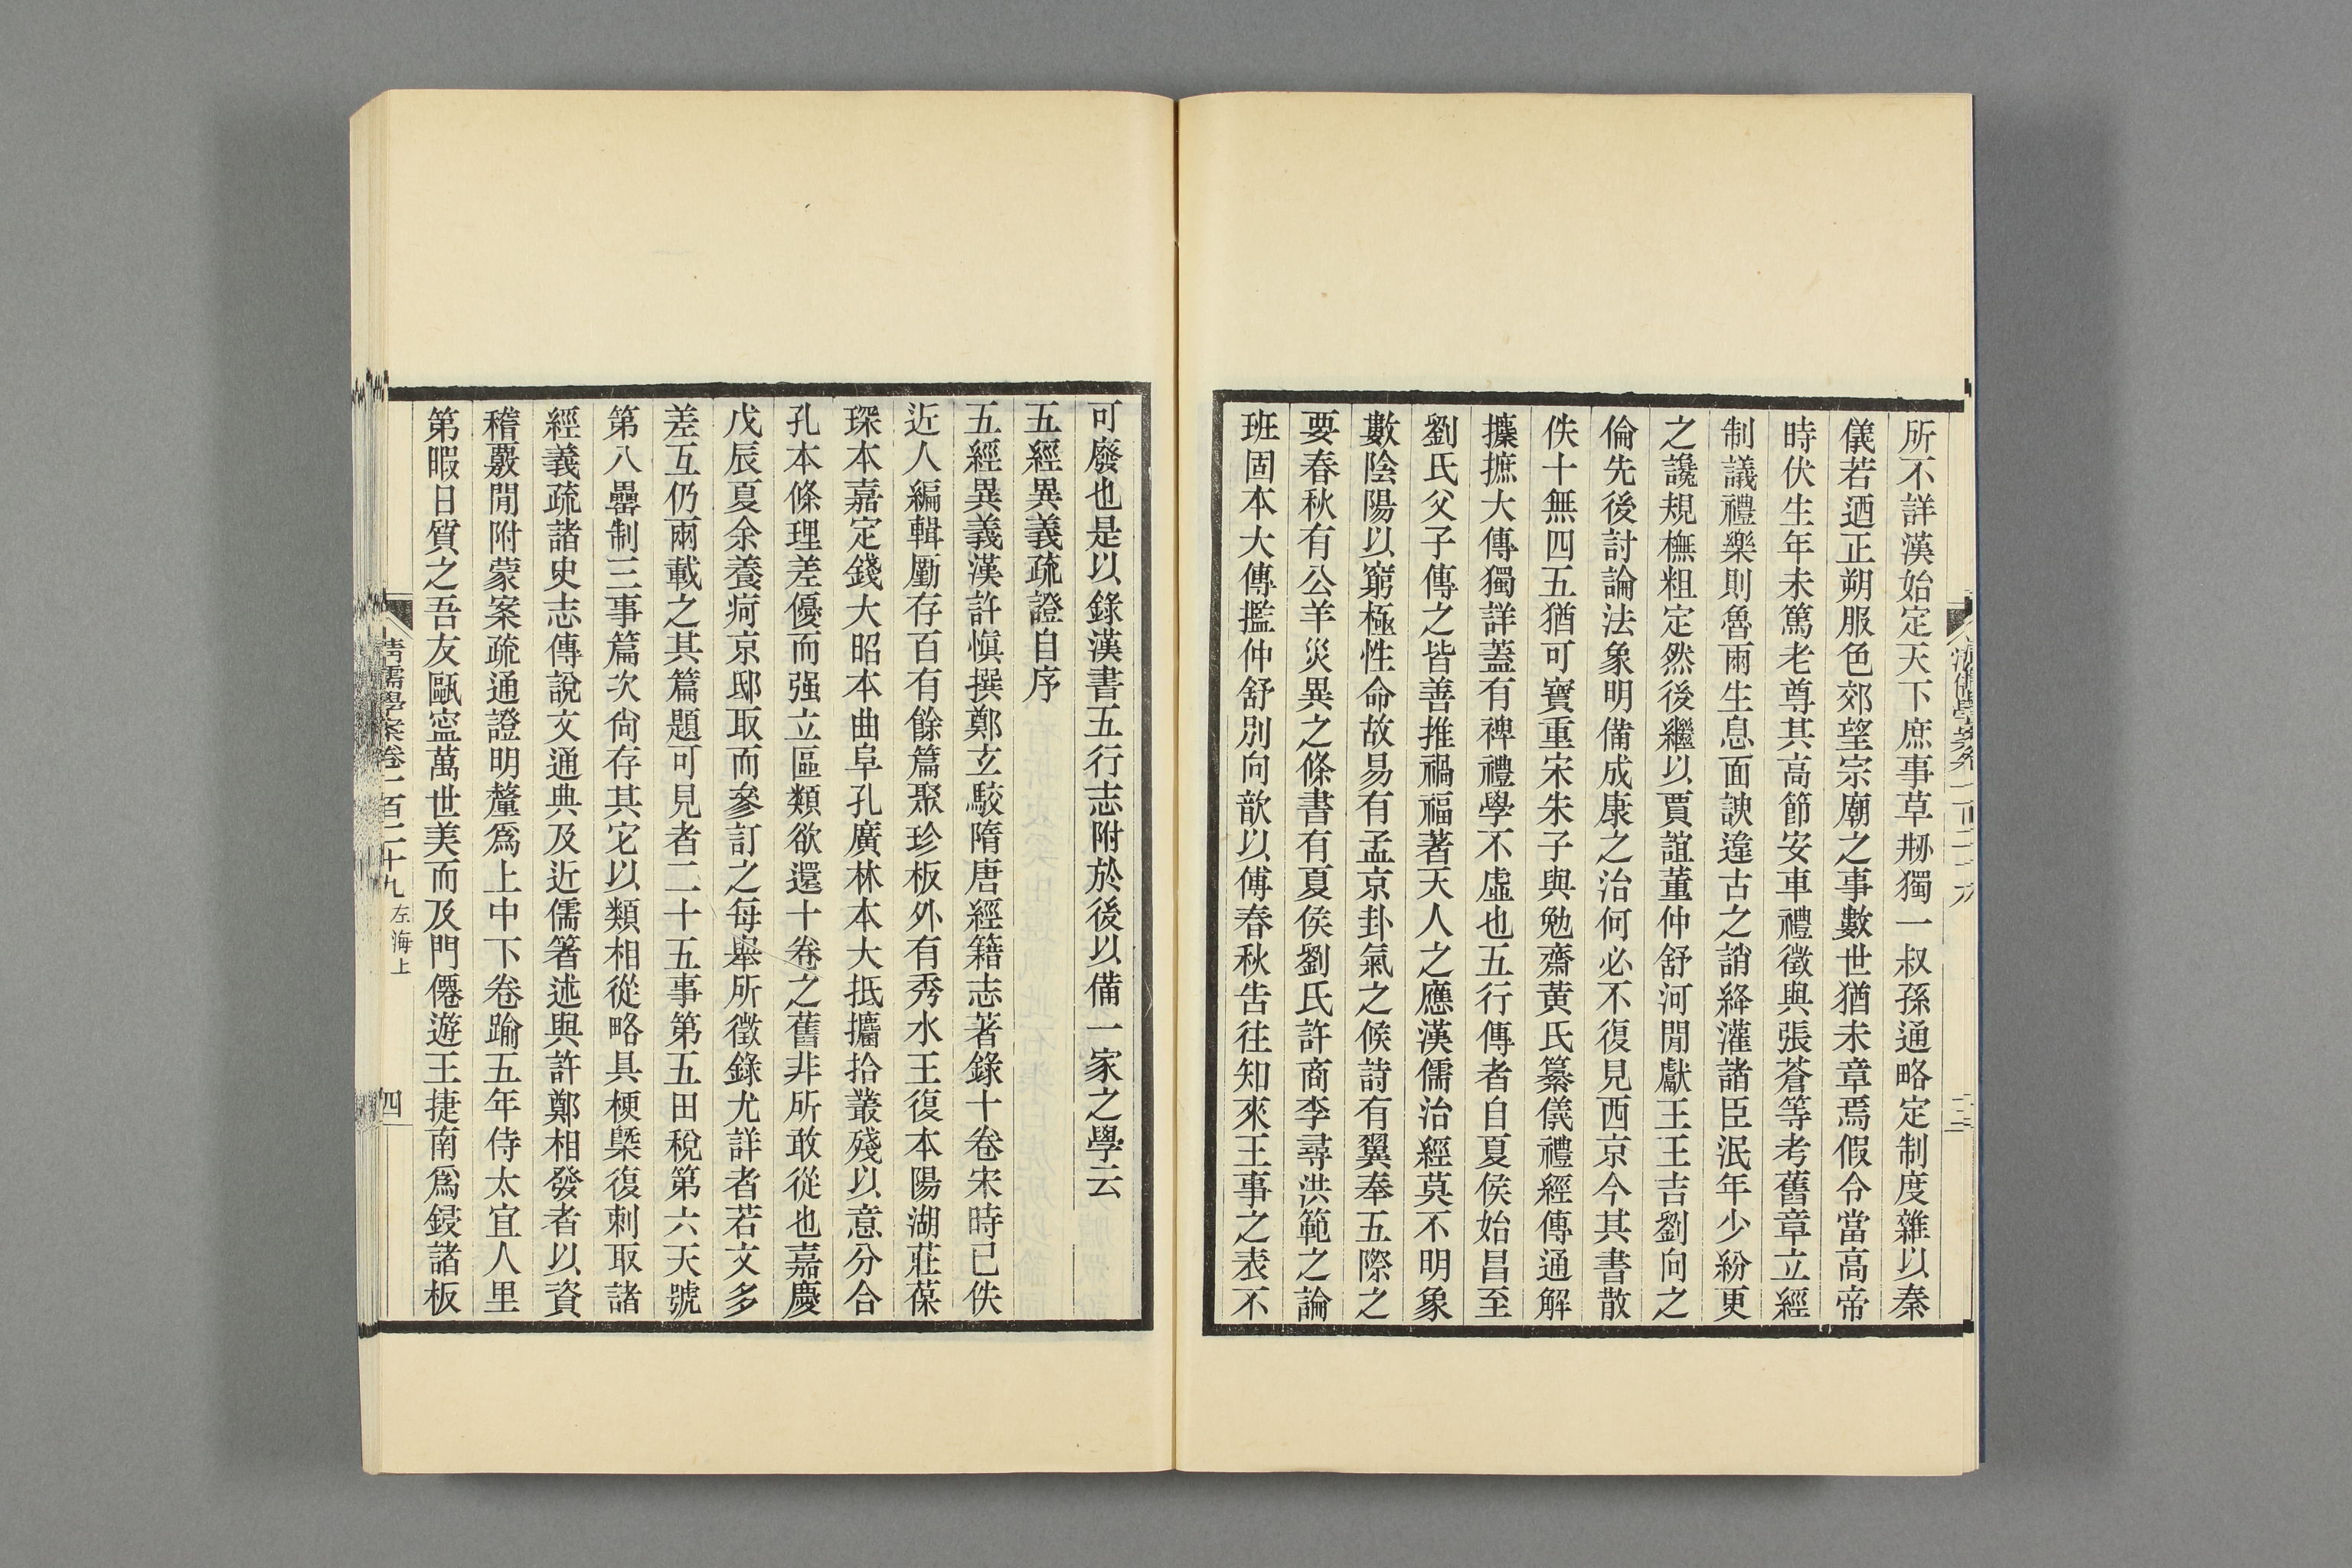 所不詳漢始定天下庶事草刱獨一叔孫通略定制度雜以秦
儀若迺正朔服色郊望宗廟之事數世猶未章焉假令當高帝
時伏生年未篤老尊其高節安車禮徵與張蒼等考舊章立經
制議禮樂則魯兩生息面諛違古之誚絳灌諸臣泯年少紛更
之讒規橅粗定然後繼以賈誼董仲舒河閒獻王王吉劉向之
倫先後討論法象明備成康之治何必不復見西京今其書散
佚十無四五猶可寶重宋朱子與勉齋黃氏纂儀禮經傳通解
攗摭大傳獨詳蓋有裨禮學不虛也五行傳者自夏侯始昌至
劉氏父子傳之皆善推禍福著天人之應漢儒治經莫不明象
數陰陽以窮極性命故易有孟京卦氣之候詩有翼奉五際之
要春秋有公羊災異之條書有夏侯劉氏許商李尋洪範之論
班固本大傳攬仲舒別向歆以傅春秋告往知來王事之表不
可廢也是以錄漢書五行志附於後以備一家之學云
五經異義疏證自序
五經異義漢許愼撰鄭玄駮隋唐經籍志著錄十卷宋時已佚
近人編輯厪存百有餘篇聚珍板外有秀水王復本陽湖莊葆
琛本嘉定錢大昭本曲阜孔廣林本大抵攟拾叢殘以意分合
孔本條理差優而强立區類欲還十卷之舊非所敢從也嘉慶
戊辰夏余養疴京邸取而參訂之每舉所徵錄尤詳者若文多
差互仍兩載之其篇題可見者二十五事第五田稅第六天號
第八罍制三事篇次尙存其它以類相從略具梗槩復刺取諸
經義疏諸史志傳說文通典及近儒箸述與許鄭相發者以資
稽覈閒附蒙案疏通證明釐爲上中下卷踰五年侍太宜人里
第暇日質之吾友甌寍萬世美而及門僊遊王捷南爲鋟諸板
清儒學案卷一百二十九 左海上
四